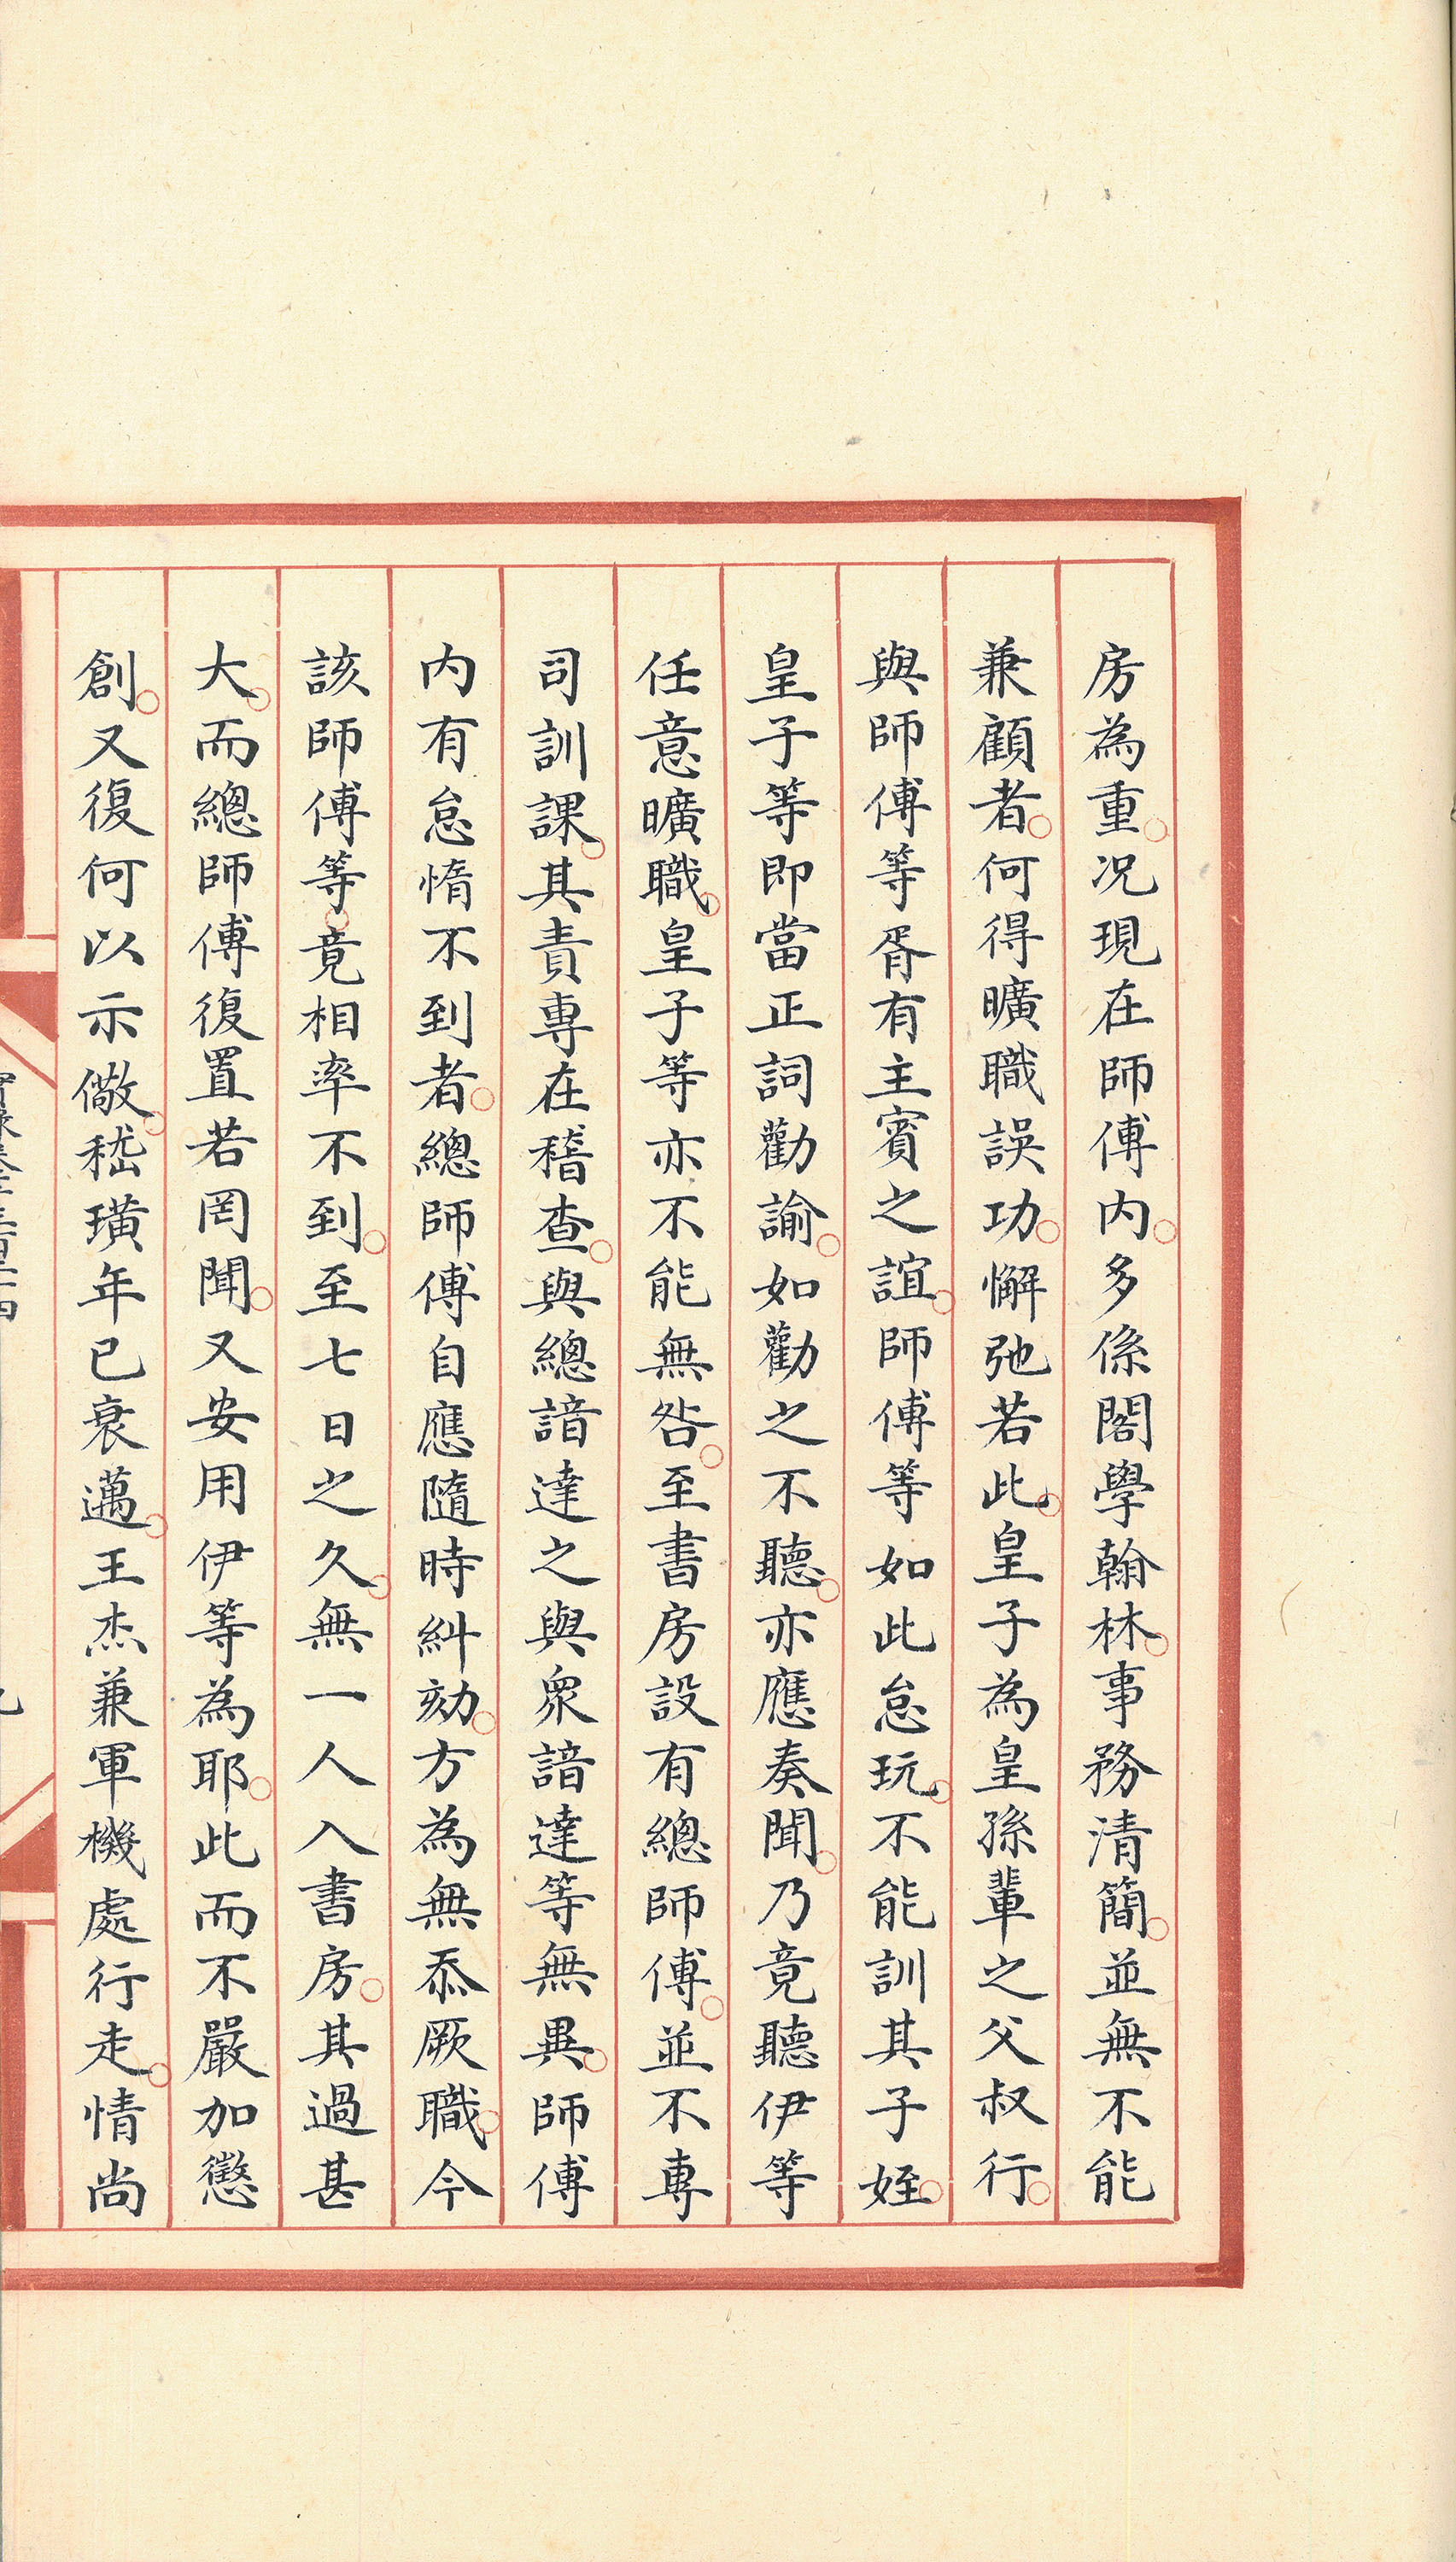 房為重。况現在師傅内。多係閣學翰林。事務清簡。並無不能
兼顧者。何得曠職誤功。懈弛若此。皇子為皇孫輩之父叔行。
與師傅等胥有主賓之誼。師傅等如此怠玩。不能訓其子姪。
皇子等即當正詞勸諭。如勸之不聽。亦應奏聞。乃竟聽伊等
任意曠職。皇子等亦不能無咎。至書房設有總師傅。並不專
司訓課。其責專在稽查。與總諳達之與眾諳達等無異。師傅
内有怠惰不到者。總師傅自應隨時糾劾。方為無忝厥職。今
該師傅等。竟相率不到。至七日之久。無一人入書房。其過甚
大。而總師傅復置若罔聞。又安用伊等為耶。此而不嚴加懲
創。又復何以示儆。嵇璜年已衰邁。王杰兼軍機處行走。情尚